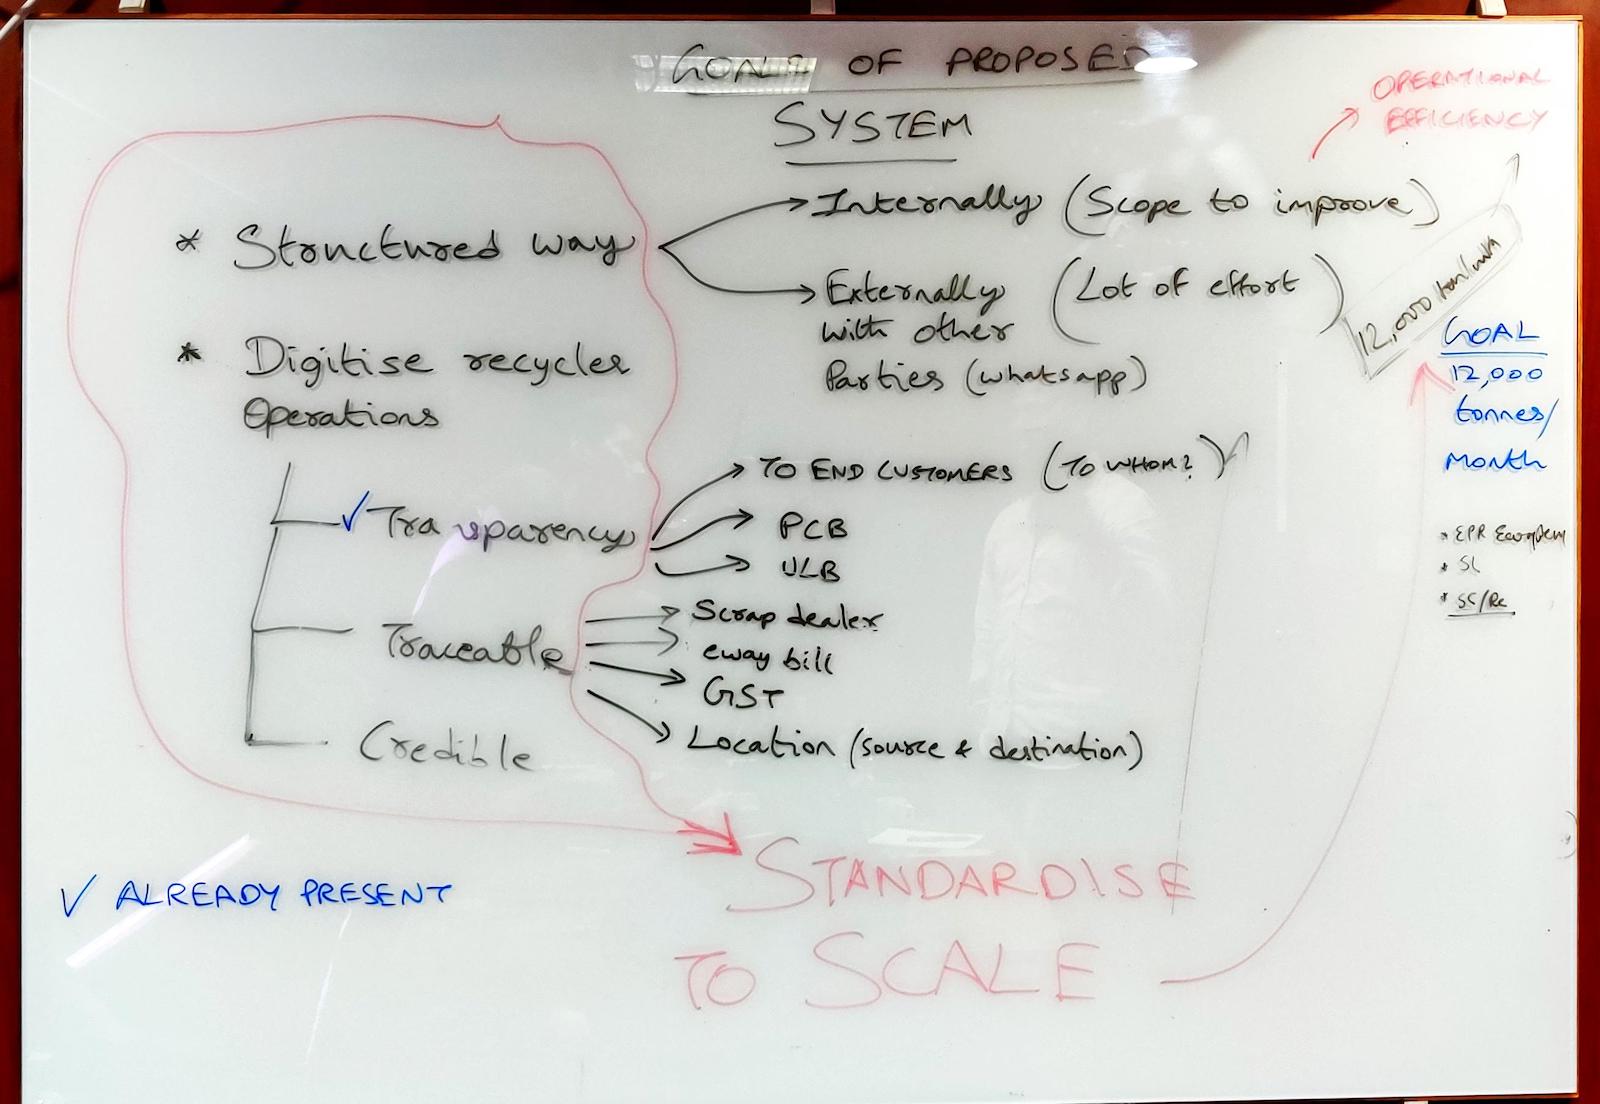 GOALS OF PROPOSED
SYSTEM
OPERATIONAL
EFFICIENCY
* Structured way
Internally (Scope to improve)
Externally (Lot of effort)
with other
Parties (whatsapp)
12,000 ton/mth
GOAL
12,000
tonnes/
Month
* Digitise recycler
Operations
✓ Transparency
TO END CUSTOMERS (TO WHOM?)
PCB
ULB
* EPR
* SL
* SC/Rc
Traceable
Scrap dealer
eway bill
GST
Location (source & destination)
Credible
✓ ALREADY PRESENT
STANDARDISE
TO SCALE